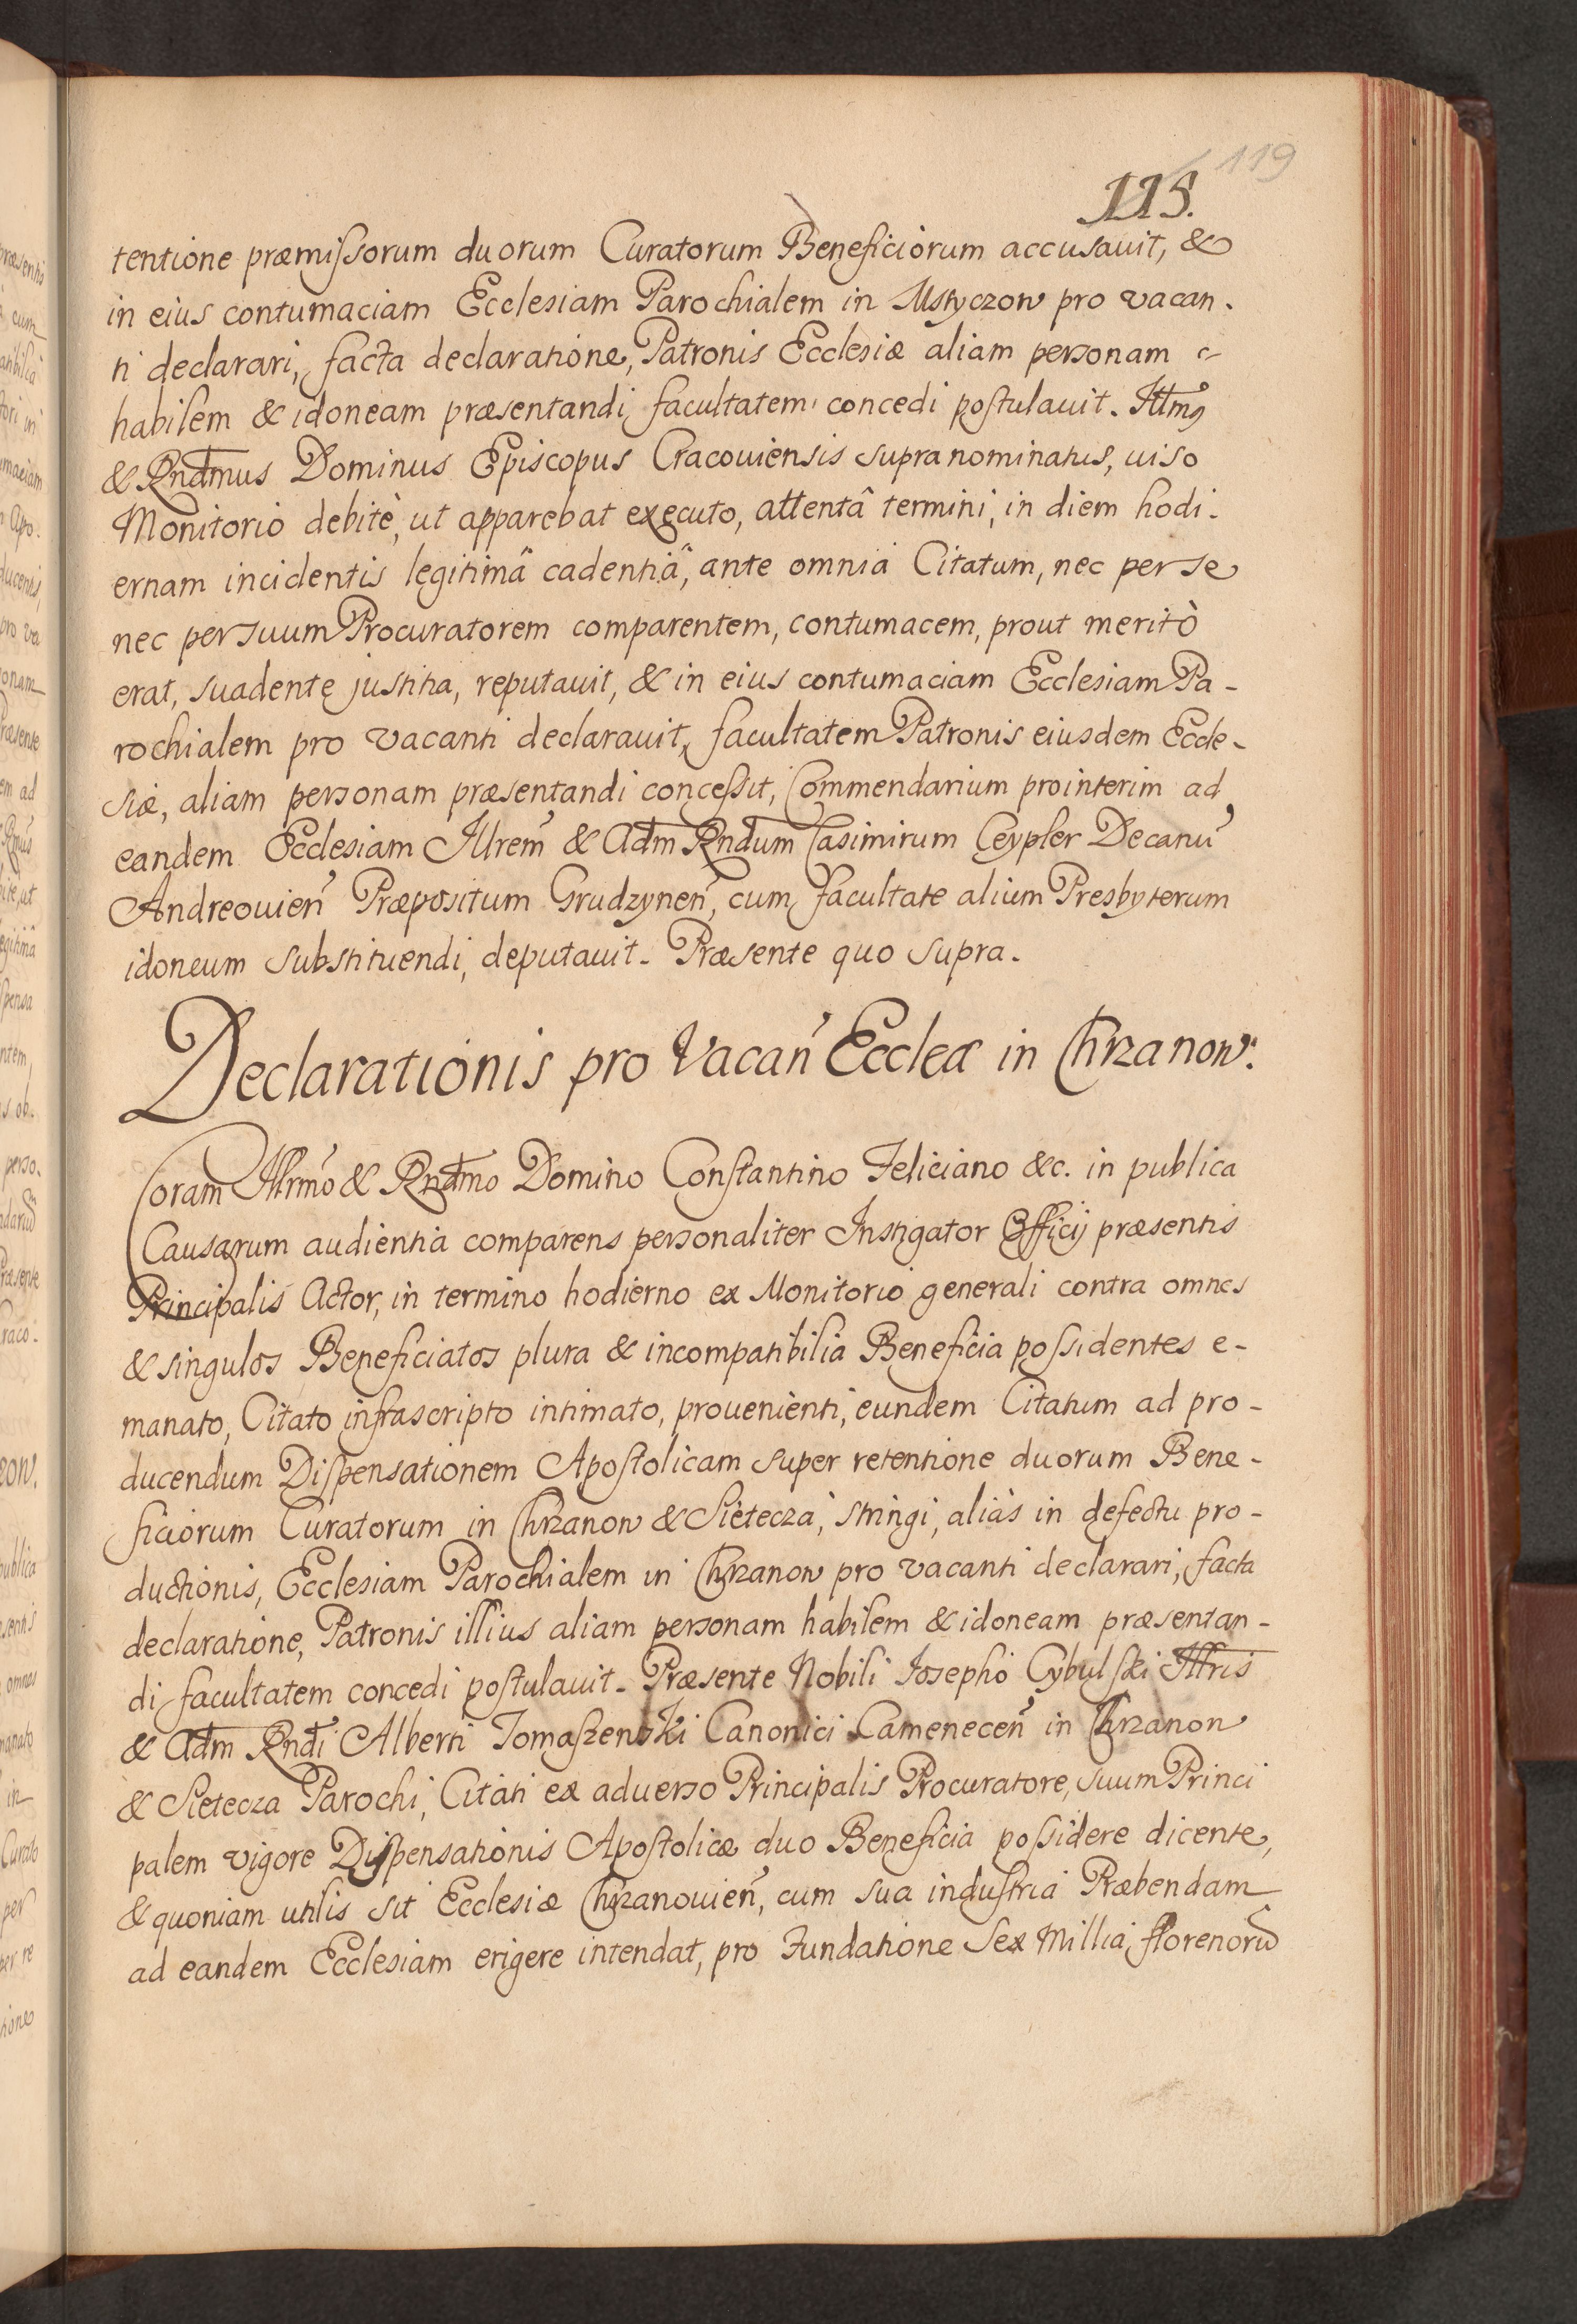 119
115.
tentione præmissorum duorum Curatorum Beneficiorum accusauit, &
in eius contumaciam Ecclesiam Parochialem in Mstyczow pro vacan-
ti declarari, facta declaratione, Patronis Ecclesiæ aliam personam
habilem & idoneam præsentandi facultatem concedi postulauit. Illmus
& Rndmus Dominus Episcopus Cracouiensis supranominatus, uiso
Monitorio debitè, ut apparebat executo, attentâ termini, in diem hodi-
ernam incidentis legitimâ cadentiâ, ante omnia Citatum, nec per se
nec per suum Procuratorem comparentem, contumacem, prout meritò
erat, suadente justitia, reputauit, & in eius contumaciam Ecclesiam Pa-
rochialem pro vacanti declarauit, facultatem Patronis eiusdem Eccle-
siæ, aliam personam præsentandi concessit, Commendarium prointerim ad
eandem Ecclesiam Illrem & Adm Rndum Casimirum Ceypler Decanũ
Andreouien Præpositum Grudzynen, cum facultate alium Presbyterum
idoneum substituendi, deputauit. Præsente quo supra.
Declarationis pro Vacan Eccleæ in Chrzanow.
Coram Illrmo & Rndmo Domino Constantino Feliciano &c. in publica
Causarum audientia comparens personaliter Instigator Officij præsentis
Principalis Actor, in termino hodierno ex Monitorio generali contra omnes
& singulos Beneficiatos plura & incompatibilia Beneficia possidentes e-
manato, Citato infrascripto intimato, prouenienti, eundem Citatum ad pro-
ducendum Dispensationem Apostolicam super retentione duorum Bene-
ficiorum Curatorum in Chrzanow & Sietecza, stringi, aliàs in defectu pro-
ductionis, Ecclesiam Parochialem in Chrzanow pro vacanti declarari, facta
declaratione, Patronis illius aliam personam habilem & idoneam præsentan-
di facultatem concedi postulauit. Præsente Nobili Iosepho Cybulski Illris
& Adm Rndi Alberti Tomaszewski Canonici Camenecen in Chrzanow
& Sietecza Parochi, Citati ex aduerso Principalis Procuratore, suum Princi
palem vigore Dispensationis Apostolicæ duo Beneficia possidere dicente,
& quoniam utilis sit Ecclesiæ Chrzanouien, cum sua industria Præbendam
ad eandem Ecclesiam erigere intendat, pro Fundatione Sex Millia florenorũ